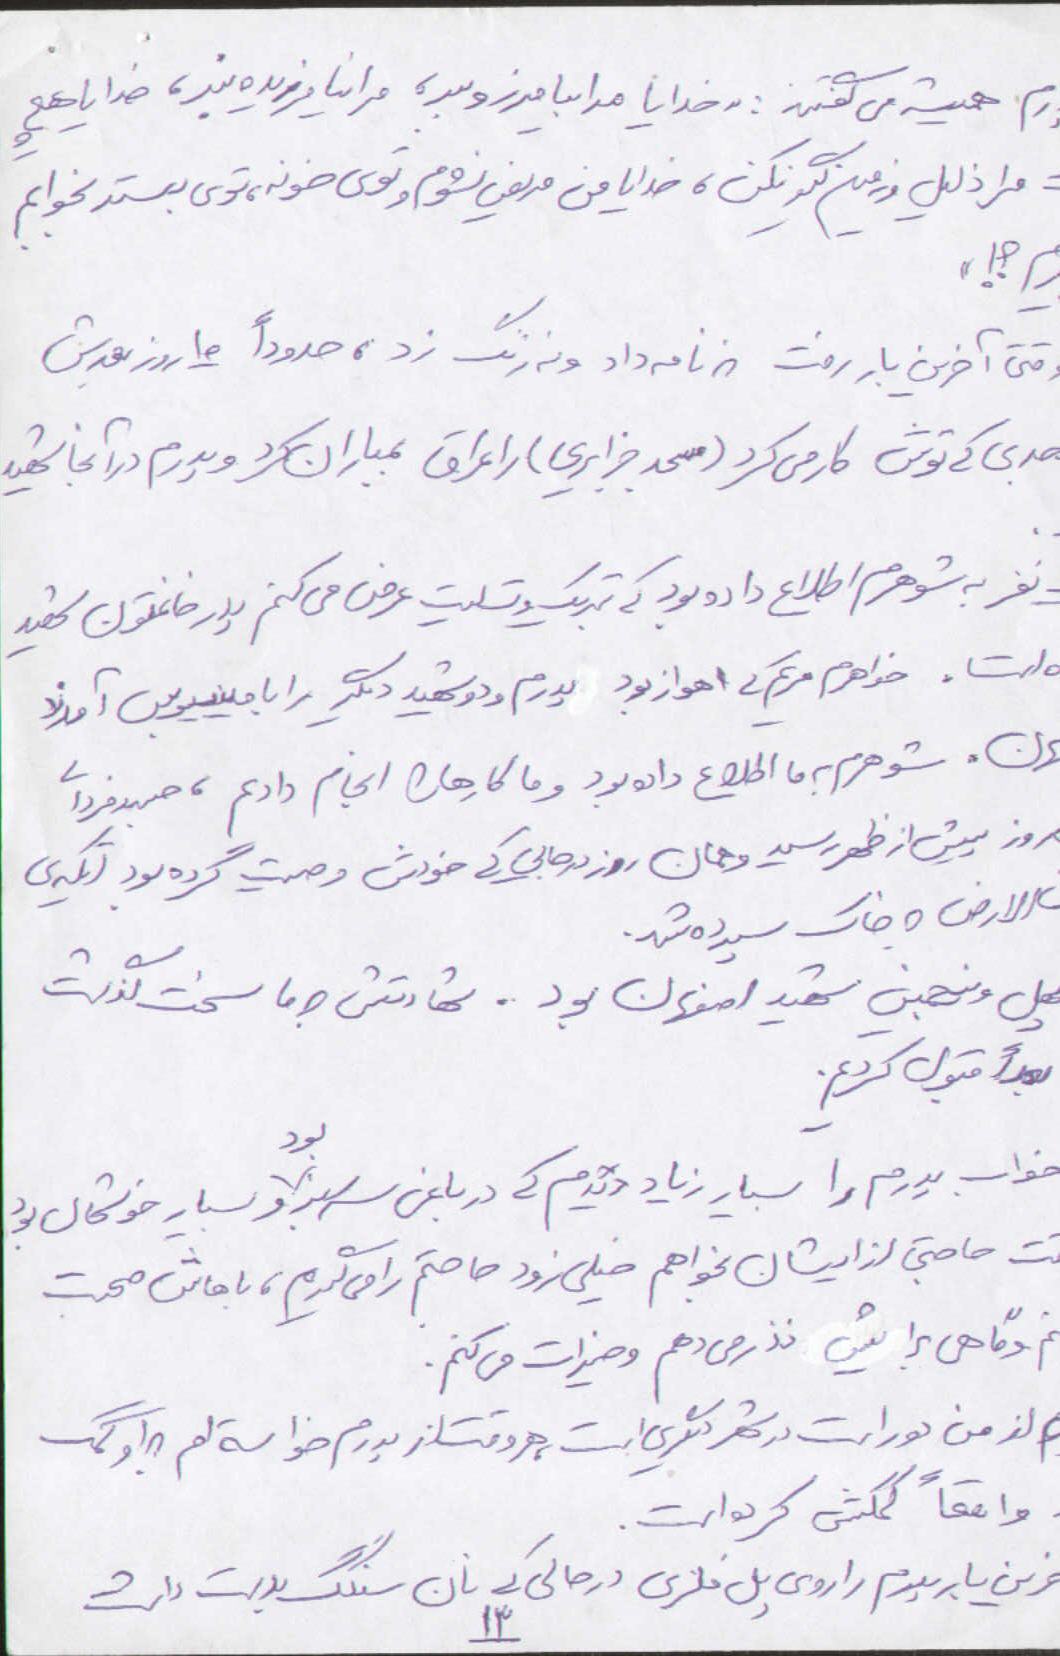 همیشه می گفتند: «خدایا مرا بیامرز و ببر، مرا نیامرزیده نبر، خدایا هیچ
مرا ذلیل و زمین گیر نکن، خدایا من مریض نشوم و توی خونه، توی بستر بخوابم
؟!»
وقتی آخرین بار رفت نه نامه داد و نه زنگ زد، حدوداً ۱۵ روز بعدش
که توش کار می کرد (مسجد جزایری) را عراق بمباران کرد و پدرم در آنجا شهید
نفر به شوهرم اطلاع داده بود که تبریک و تسلیت عرض می کنم پدر خانمتون شهید
است. خواهرم مریم که اهواز بود پدرم و دو شهید دیگر را با مینی بوس آمدند
شوهرم به ما اطلاع داده بود و ما کارها را انجام دادیم، صبح فردای
روز پیش از ظهر رسید و همان روز در جایی که خودش وصیت کرده بود تکیه ی
الارض به خاک سپرده شد.
چهل و پنجمین شهید اصفهان بود. شهادتش به ما سخت گذشت
بعداً قبول کردیم.
خواب پدرم را بسیار زیاد دیدم که در باغی سرسبز بود و بسیار خوشحال بود
حاجتی از ایشان بخواهم خیلی زود حاجتم را می گیرم، باهاش صحبت
و گاهی برایش نذر می دهم و خیرات می کنم.
از من دور است در شهر دیگری است هر وقت از پدرم خواسته ام به او کمک
واقعاً کمکش کرده است.
آخرین بار پدرم را روی پل فلزی در حالی که نان سنگک بدست داشت
۱۳